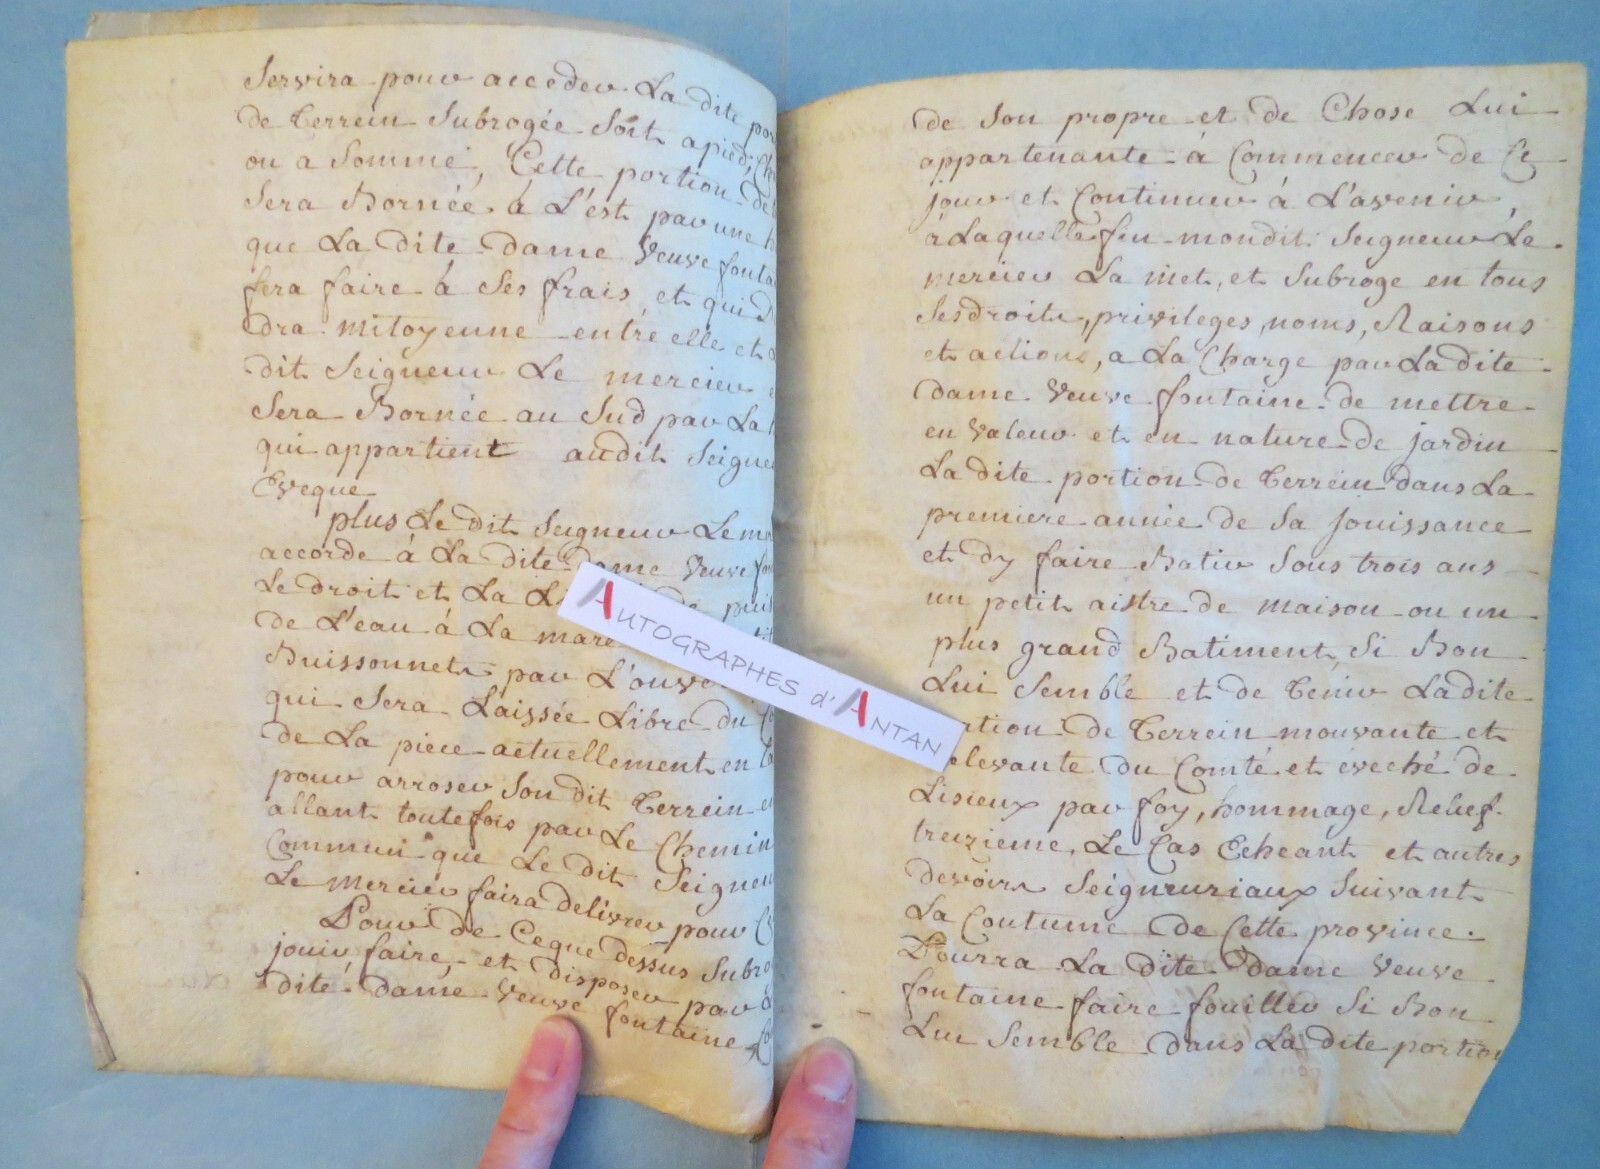 Servira pour acceder La dite por
de terrein Subrogée Soit apied,
ou a Somme, Cette portion de
Sera Bornée à L'est par une h
que La dite dame Veuve fonta
fera faire à Ses frais, et qui
dra mitoyenne entre elle et
dit Seigneur Le mercier
Sera Bornée au Sud par La
qui appartient audit Seigne
Eveque
plus Le dit Seigneur Le m
accorde à La dite dame Veuve fon
Le droit et La Li de puis
de L'eau à La mare
Buissonnet par L'ouve
qui Sera Laissée Libre du
de La piece actuellement en
pour arroser Son dit terrein
allant toutefois par Le Chemin
Commun que Le dit Seigneu
Le mercier faira delivrer pour
Pour de Ceque dessus Subro
jouir faire, et disposer par
dite dame Veuve fontaine,
de Son propre et de Chose Lui
appartenante à Commencer de Ce
jour et Continuer à L'avenir,
à Laquelle fin mondit Seigneur Le
mercier La met, et Subroge en tous
Ses droits, privileges, noms, Raisons
et actions, a La Charge par La dite
dame Veuve fontaine de mettre
en Valeur et en nature de jardin
La dite portion de terrein dans La
premiere année de Sa jouissance
et dy faire Batir Sous trois ans
un petit aistre de maison ou un
plus grand Batiment, Si Bon
Lui Semble et de tenir La dite
ortion de terrein mouvante et
elevante du Comté et eveché de
Lisieux par foy, hommage, Relief
treizieme, Le Cas Echeant et autres
devoirs Seigneuriaux Suivant
La Coutume de Cette province.
Pourra La dite dame Veuve
fontaine faire fouiller Si Bon
Lui Semble dans La dite portion
AUTOGRAPHES d'ANTAN